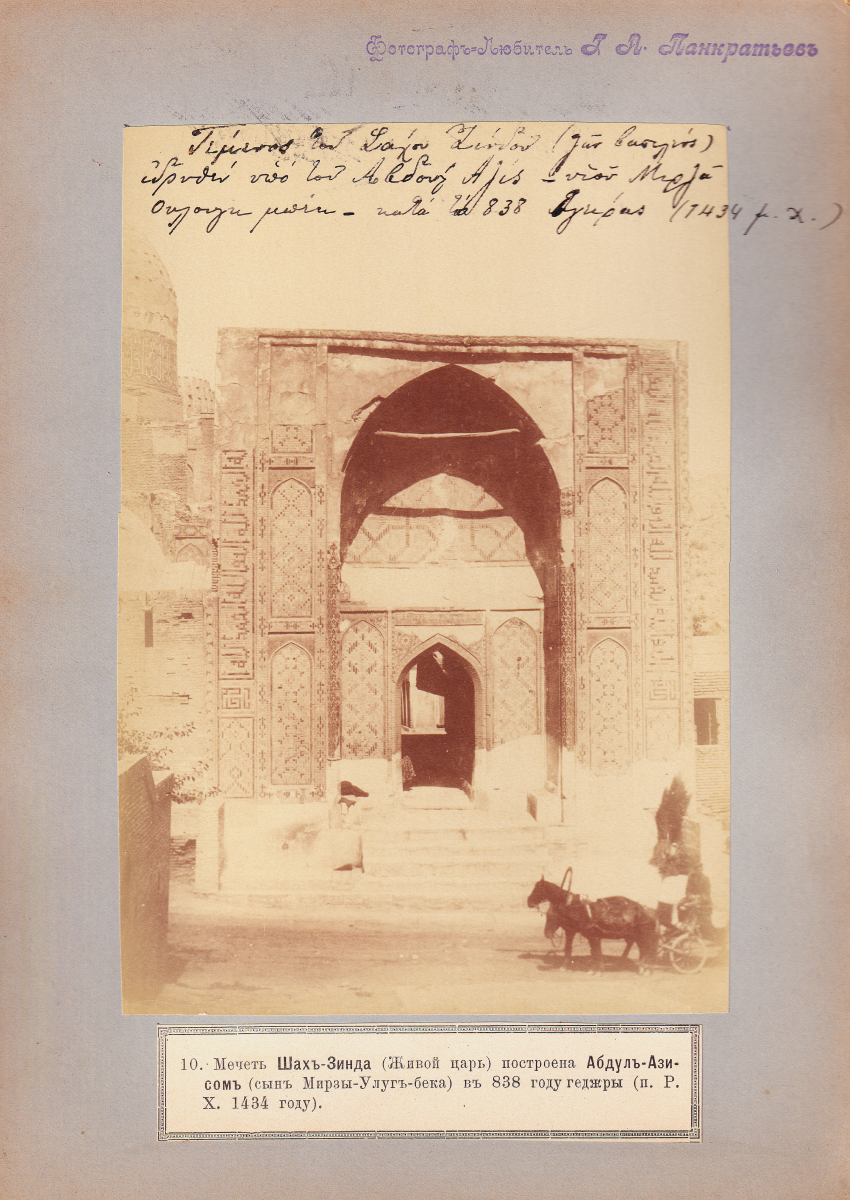 Фотографъ-Любитель Г. А. Панкратьевъ
Τέμενος τοῦ Σάχου Ζίνδου (ζῶν βασιλεύς)
ἱδρυθέν ὑπό τοῦ Αβδούλ Αζίς – υἱοῦ Μιρζᾶ
Ουλουγκ μπέκ – κατά τά 838 Εγείρας (1434 μ. Χ.)
10. Мечеть Шахъ-Зинда (Живой царь) построена Абдулъ-Ази-
сомъ (сынъ Мирзы-Улугъ-бека) въ 838 году геджры (п. Р.
Х. 1434 году).